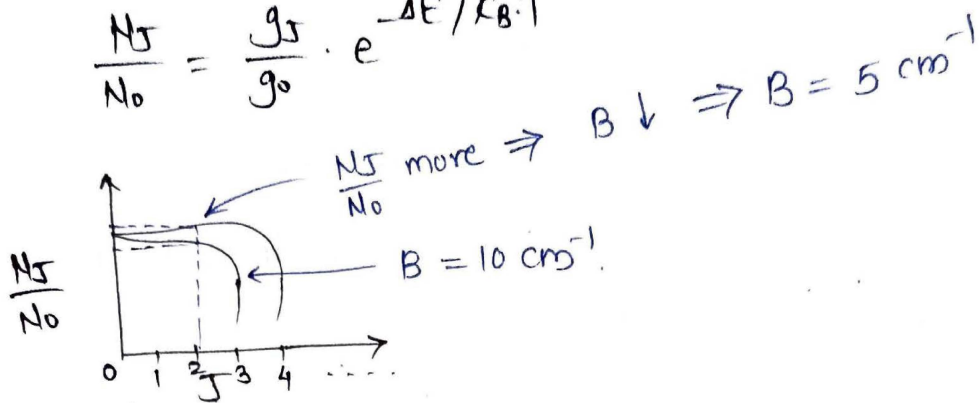 NJ/N0 = gJ/g0 · e^-ΔE/KB.T
NJ/N0 more ⇒ B ↓ ⇒ B = 5 cm⁻¹
B = 10 cm⁻¹.
NJ/N0
0 1 2 3 4 .....
J